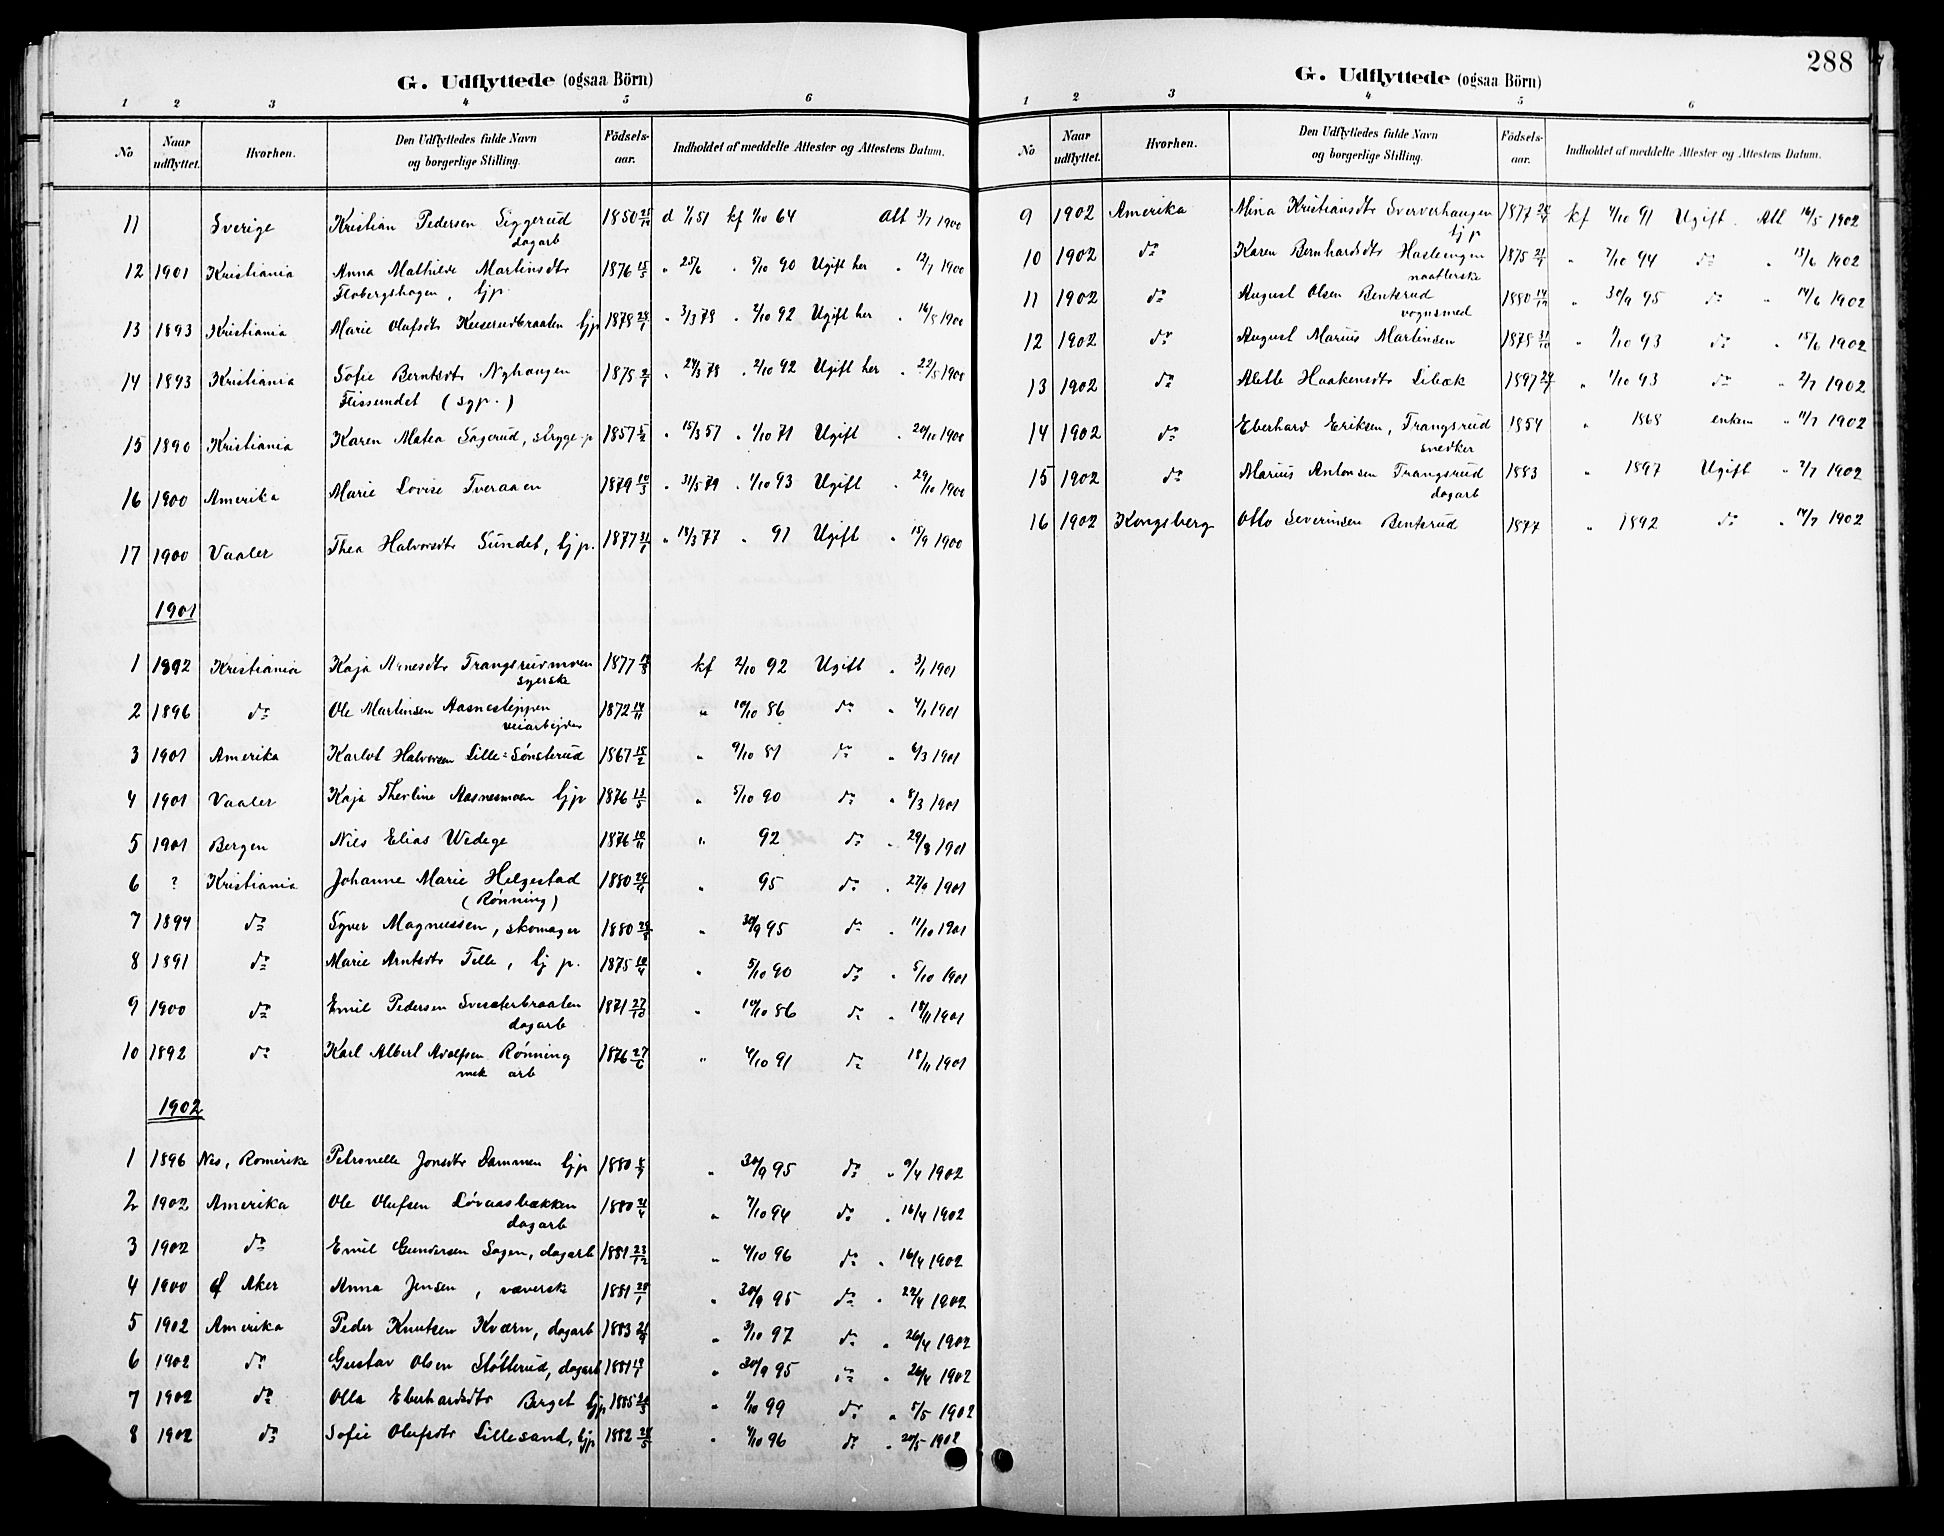 G. Udflyttede (ogsaa Börn)
1 2 3 4 5 6
No Naar udflyttet. Hvorhen. Den Udflyttedes fulde Navn og borgerlige Stilling. Födsels-aar. Indholdet af meddelte Attester og Attestens Datum.
11 Sverige Kristian Pedersen Siggerud 1850 d 7/1 51 kf 1/10 64 Att 3/7 1900
dagarb
12 1901 Kristiania Anna Mathilde Martinsdtr 1876 15/5 " 25/6 " 5/10 90 Ugift her " 12/7 1900
Flobergshagen, tjp.
13 1893 Kristiania Marie Olufsdtr Keiserudbraaten tjp 1878 " 3/3 78 " 2/10 92 Ugift her " 16/8 1900
14 1893 Kristiania Sofie Berntsdtr Nyhaugen 1878 2/1 " 24/3 78 " 2/10 92 Ugift her " 22/8 1900
Flissundet (syp.)
15 1890 Kristiania Karen Matea Sagerud, stryge-p 1857 5/2 " 15/3 57 " 1/10 71 Ugift " 20/10 1900
16 1900 Amerika Marie Lovise Tveraaen 1879 10/3 " 31/5 79 " 1/10 93 Ugift " 29/10 1900
17 1900 Vaaler Thea Halvorsdtr Sundet, tjp. 1877 31/1 " 18/3 77 " 91 Ugift " 15/9 1900
1901
1 1892 Kristiania Kaja Arnesdtr Trangsrudmoen 1877 kf 2/10 92 Ugift " 3/1 1901
syerske
2 1896 do Ole Martinsen Aasnesteppen 1872 14/11 " 10/10 86 do " 4/1 1901
veiarbejder
3 1901 Amerika Karlot Halvorsen Lille-Sønsterud 1867 15/2 " 9/10 81 do " 6/3 1901
4 1901 Vaaler Kaja Thorline Aasnesmoen tjp 1876 13/5 " 5/10 90 do " 8/3 1901
5 1901 Bergen Nils Elias Wedege 1876 10/11 " 92 do " 29/8 1901
6 ? Kristiania Johanne Marie Helgestad 1880 " 95 do " 27/9 1901
(Rønning)
7 1894 do Syver Magnussen, skomager 1880 " 30/9 95 do " 11/10 1901
8 1891 do Marie Arntsdtr Telle, tj p. 1875 10/4 " 5/10 90 do " 5/10 1901
9 1900 do Emil Pedersen Svesæterbraaten 1871 27/10 " 10/10 86 do " 18/11 1901
dagarb
10 1892 do Karl Albert Adolfsen Rønning 1876 27/6 " 4/10 91 do " 18/11 1901
mek arb
1902
1 1896 Nes, Romerike Petronelle Jonsdtr Dammen tjp 1880 " 30/9 95 do " 9/4 1902
2 1902 Amerika Ole Olufsen Løvaasbækken 1880 21/4 " 7/10 94 do " 16/4 1902
dagarb
3 1902 do Emil Gundersen Sagen, dagarb 1881 23/12 " 4/10 96 do " 16/4 1902
4 1900 Ø Aker Anna Jensen, væverske 1881 28/1 " 30/9 95 do " 22/4 1902
5 1902 Amerika Peder Knutsen Kværn, dagarb 1883 21/9 " 3/10 97 do " 26/4 1902
6 1902 do Gustav Olsen Støtterud, dagarb 1881 " 30/9 95 do " 26/4 1902
7 1902 do Olla Eberhardsdtr Berget tjp 1885 " 1/10 99 do " 5/5 1902
8 1902 do Sofie Olufsdtr Lillesand, tjp 1882 28/5 " 4/10 96 do " 20/5 1902
288
G. Udflyttede (ogsaa Börn)
1 2 3 4 5 6
No Naar udflyttet. Hvorhen. Den Udflyttedes fulde Navn og borgerlige Stilling. Födsels-aar. Indholdet af meddelte Attester og Attestens Datum.
9 1902 Amerika Mina Kristiansdtr Sververhaugen 1877 kf 4/10 91 Ugift. Att 16/5 1902
tjp
10 1902 do Karen Bernhardsdtr Hasleengen 1875 21/1 " 7/10 94 do " 13/6 1902
naatlerske
11 1902 do August Olsen Bentsrud 1880 14/10 " 30/9 95 do " 14/6 1902
vognsmed
12 1902 do August Marius Martinsen 1878 31/10 " 1/10 93 do " 15/6 1902
13 1902 do Alette Haakensdtr Libæk 1897 " 1/10 93 do " 2/7 1902
14 1902 do Eberhard Eriksen, Trangsrud 1854 " 1868 enkem " 11/7 1902
snedker
15 1902 do Marius Antonsen Trangsrud 1883 " 1897 Ugift " 7/7 1902
dagarb
16 1902 Kongsberg Otto Severinsen Bentsrud 1877 " 1892 do " 14/7 1902